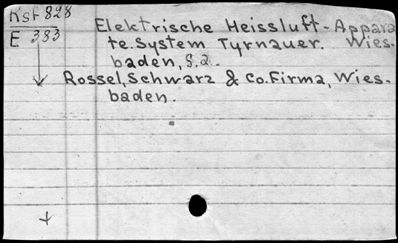 Kst 828
E 383
Elektrische Heissluft-Appara
te. System Tyrnauer. Wies-
baden, s.a.
Rossel, Schwarz & Co. Firma, Wies-
baden.